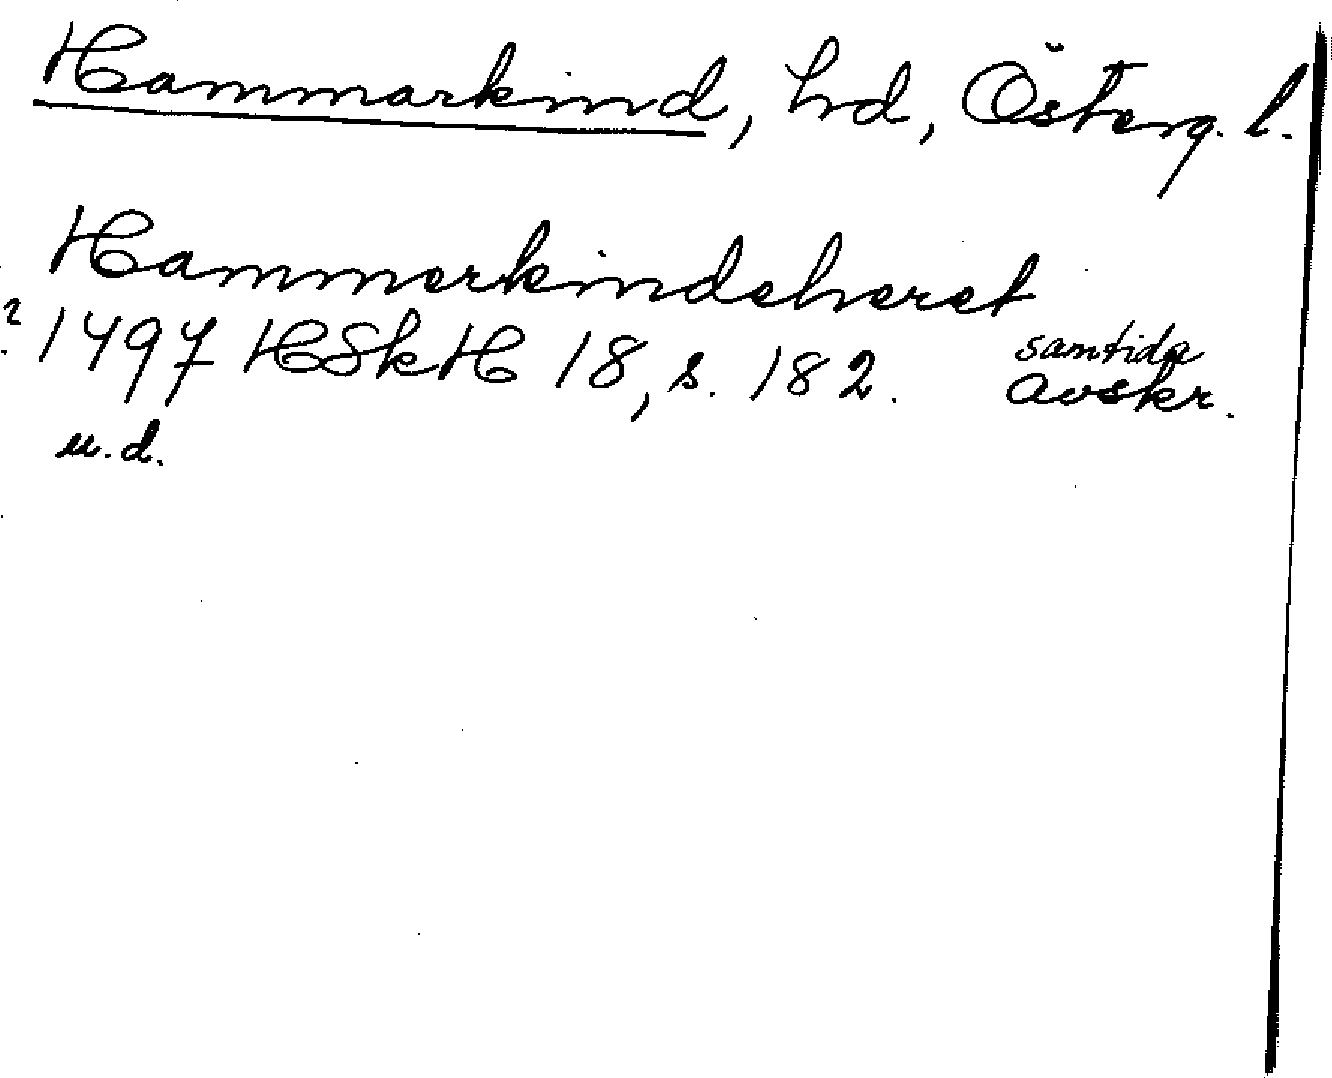 Hammarkind, hd, Österg. l.
Hammerkindeheret
? 1497 HSkH 18, s. 182. samtida avskr.
u.d.